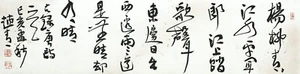 楊柳青
江水平聞
郎江上踏
歌聲
東邊日出
西邊雨道
是無晴却
有晴